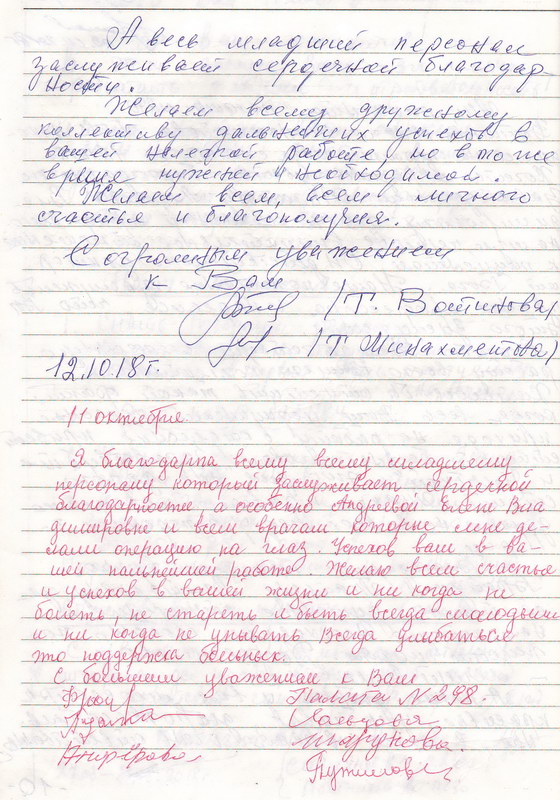 А весь младший персонал
заслуживает сердечной благодар
ности.
Желаем всему дружному
коллективу дальнейших успехов в
вашей нелегкой работе, но в то же
время нужней и необходимой.
Желаем всем, всем личного
счастья и благополучия.
С огромным уважением
к Вам
/Т. Вотинова/
/Т Минахметова/
12.10.18г.
11 октября.
Я благодарна всему всему младшему
персоналу который заслуживает сердеской
благодарности, а особенно Андреевой Елене Вла
димировне и всем врачам которые мне де-
лали операцию на глаз. Успехов вам в ва-
шей дальнейшей работе. Желаю всем счастье
и успехов в вашей жизни и ни когда не
болеть, не стареть и быть всегда молодыми
и ни когда не унывать всегда улыбаться
это поддержка больных.
С большим уважением к Вам
Палата N 298.